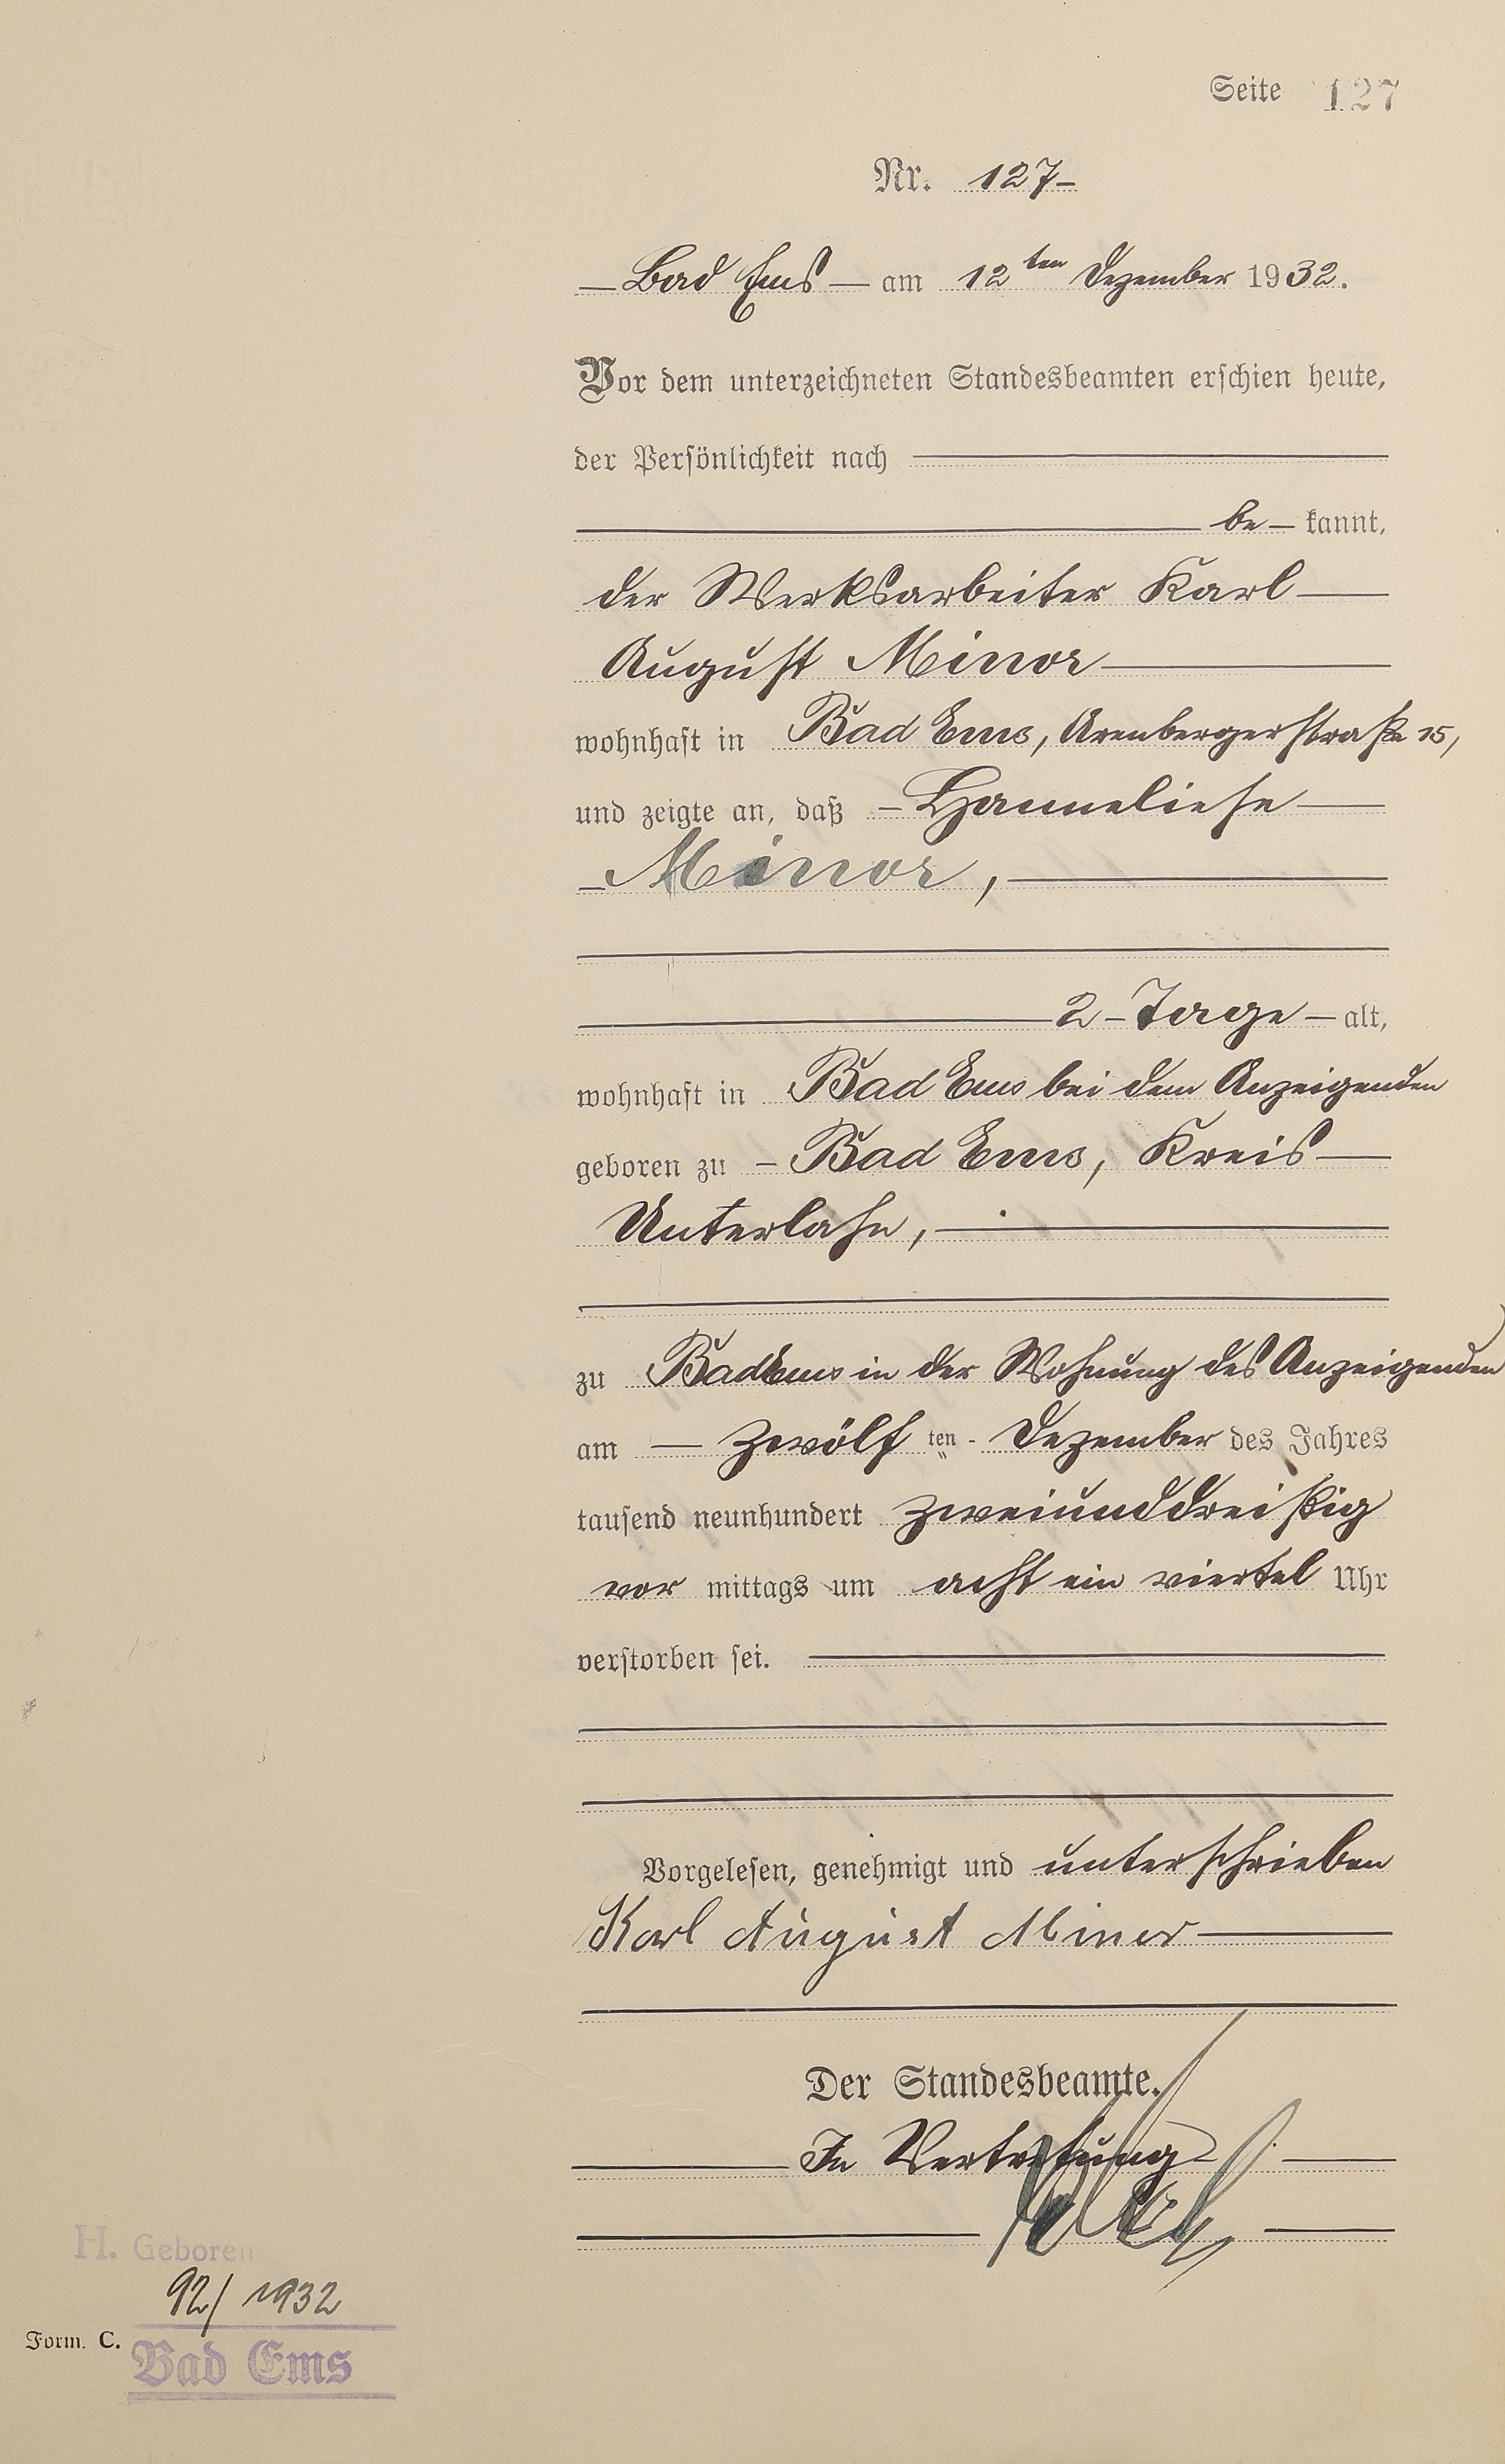 Seite 127
Nr. 127
Bad Ems am 12ten Dezember 1932.
Vor dem unterzeichneten Standesbeamten erschien heute,
der Persönlichkeit nach
be- kannt,
der Werksarbeiter Karl
August Minor
wohnhaft in Bad Ems, Arenbergerstraße 15,
und zeigte an, daß Hanneliese
Minor,
2 Tage alt,
wohnhaft in Bad Ems bei dem Anzeigenden
geboren zu Bad Ems, Kreis
Unterlahn,
zu Bad Ems in der Wohnung des Anzeigenden
am zwölf ten Dezember des Jahres
tausend neunhundert zweiunddreißig
vor mittags um acht ein viertel Uhr
verstorben sei.
Vorgelesen, genehmigt und unterschrieben
Karl August Minor
Der Standesbeamte.
In Vertretung
H. Geboren
92/1932
Form. C.
Bad Ems